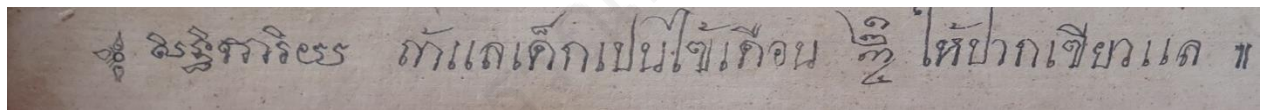 ๏ สิทธิการิยะ ถ้าแลเด็กเปนไข้เดือน ให้ปากเขียวแล ฯ